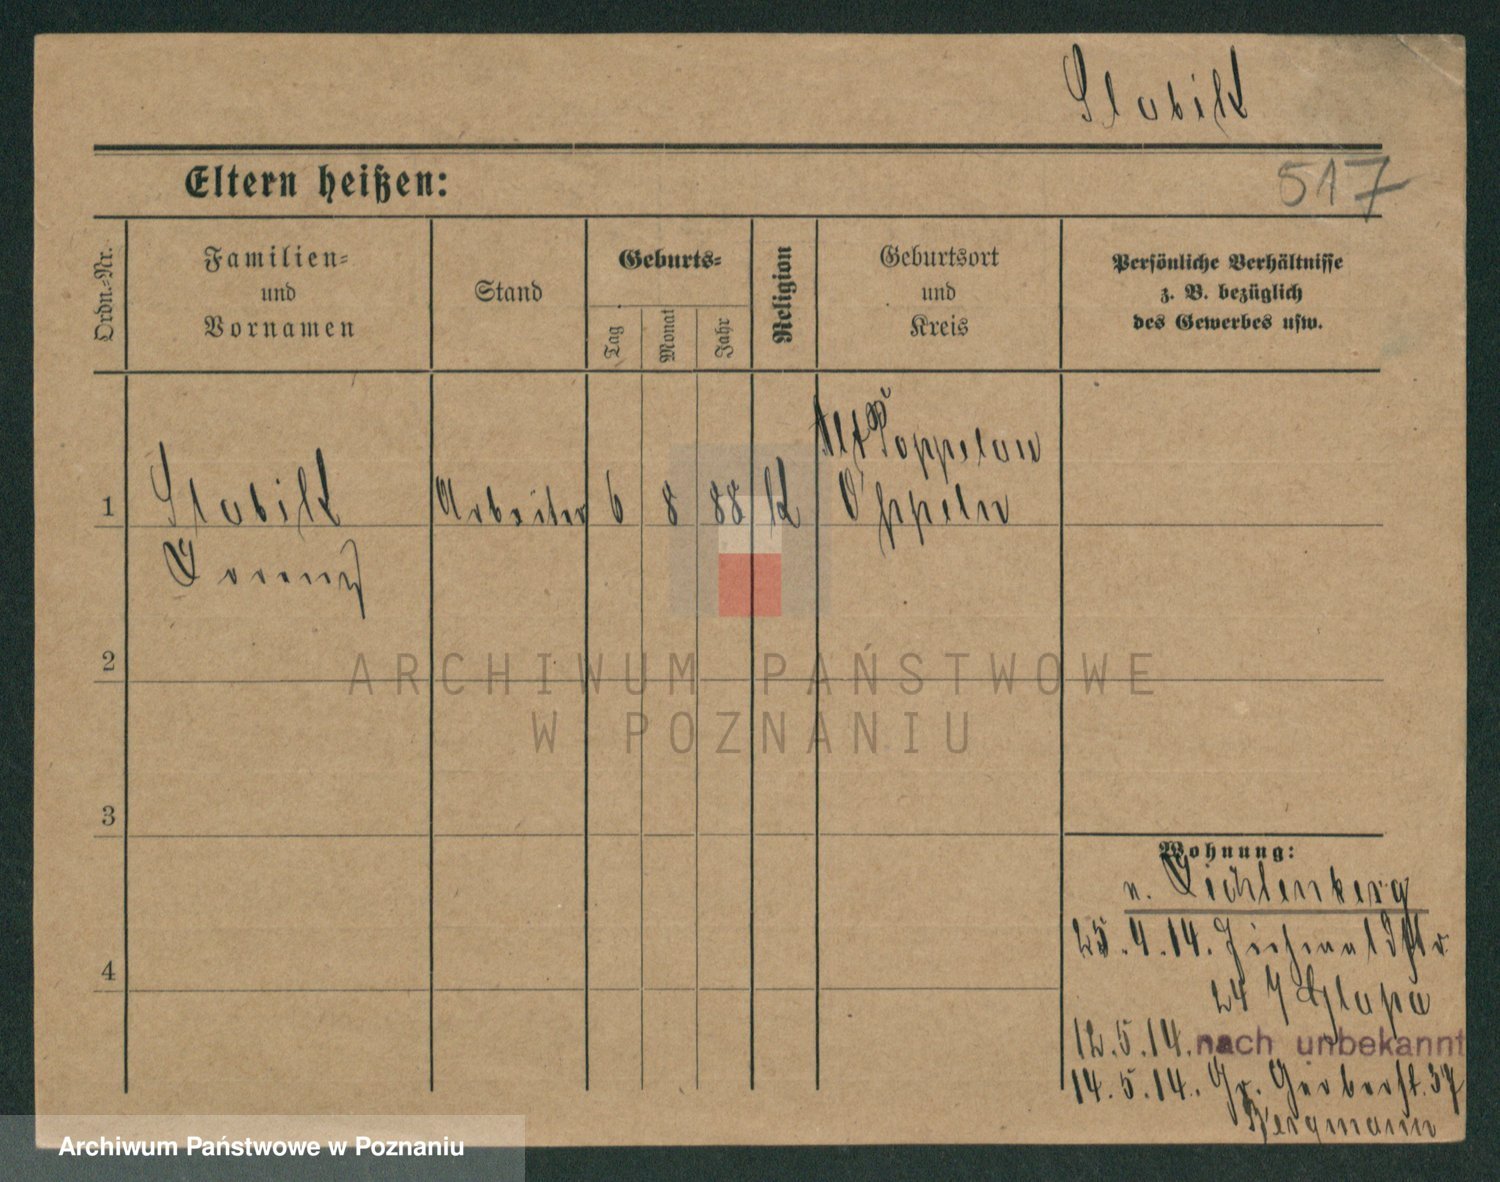 Slabik
517
Eltern heißen:
Ordn.-Nr.
Familien-
und
Vornamen
Stand
Geburts-
Tag
Monat
Jahr
Religion
Geburtsort
und
Kreis
Persönliche Verhältnisse
z. B. bezüglich
des Gewerbes usw.
Alt Poppelau
1 Slabik Arbeiter 6 8 88 K Oppeln
Lorenz
2
ARCHIWUM PAŃSTWOWE
W POZNANIU
3
Wohnung:
n. Lichtenberg
25.4.14.
24
4
12.5.14. nach unbekannt
14.5.14. Gr. Gerberst. 37
Bergmann
Archiwum Państwowe w Poznaniu